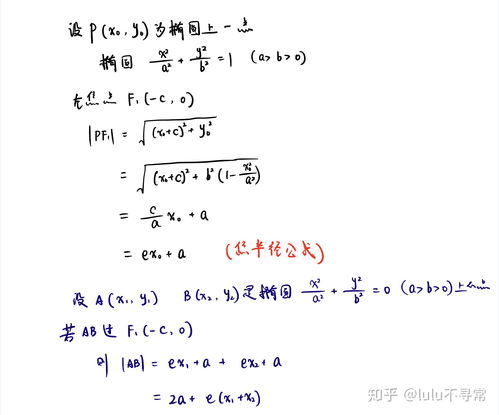 设 P(x₀, y₀) 为椭圆上一点
椭圆 x²/a² + y²/b² = 1 (a>b>0)
左焦点 F₁(-c, 0)
|PF₁| = √((x₀+c)² + y₀²)
= √((x₀+c)² + b²(1 - x₀²/a²))
= c/a x₀ + a
= ex₀ + a (焦半径公式)
设 A(x₁, y₁) B(x₂, y₂) 是椭圆 x²/a² + y²/b² = 0 (a>b>0) 上的点
若 AB 过 F₁(-c, 0)
则 |AB| = ex₁ + a + ex₂ + a
= 2a + e(x₁+x₂)
知乎 @lulu不寻常